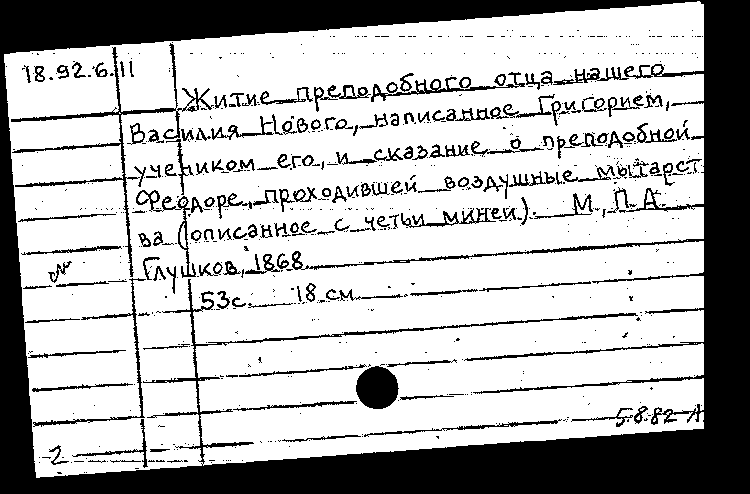 18.92.6.11
Житие преподобного отца нашего
Василия Нового, написанное Григорием,
учеником его, и сказание о преподобной
Феодоре, проходившей воздушные мытарст
ва (описанное с четьи минеи). М., П.А.
Глушков, 1868
53с. 18 см
5.8.82
2